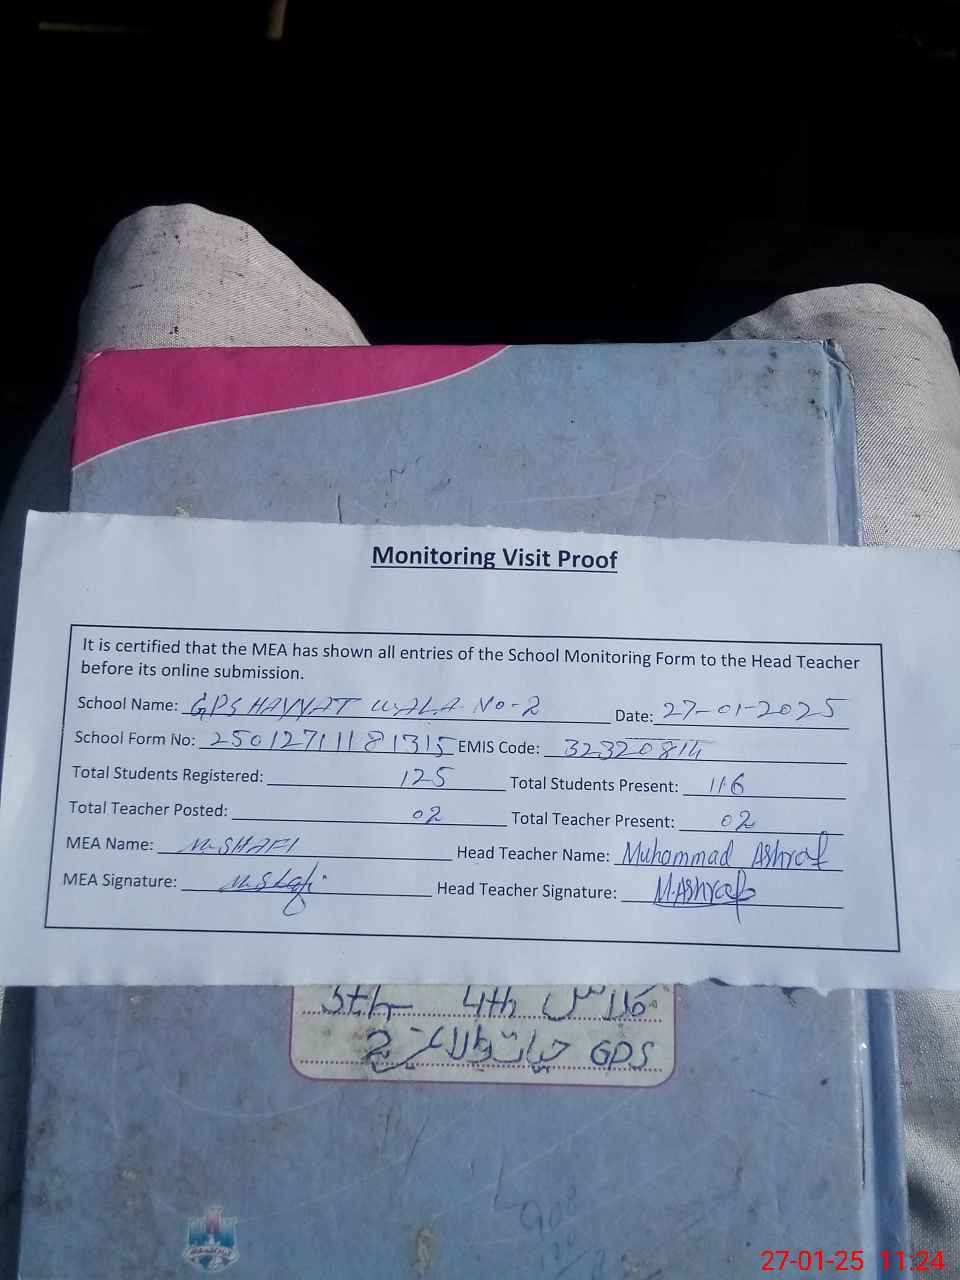 Monitoring Visit Proof
It is certified that the MEA has shown all entries of the School Monitoring Form to the Head Teacher
before its online submission.
School Name: GPS HAYYAT WALA No-2 Date: 27-01-2025
School Form No: 25012711181315 EMIS Code: 32320814
Total Students Registered: 125 Total Students Present: 116
Total Teacher Posted: 02 Total Teacher Present: 02
MEA Name: M. SHAFI Head Teacher Name: Muhammad Ashraf
MEA Signature: M. Shafi Head Teacher Signature: M.Ashraf
کلاس 4th 5th
GPS حیات والا غربی 2
27-01-25 11:24